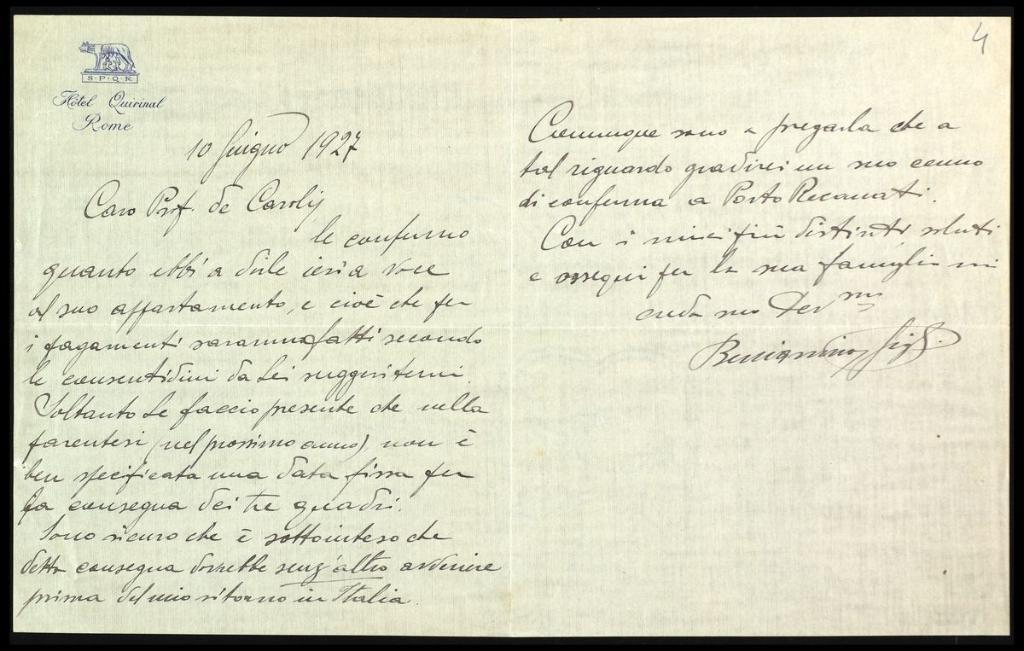 S·P·Q·R
Hôtel Quirinal
Rome
10 Giugno 1927
Caro Prof. de Carolis
le confermo
quanto ebbi a dirle ieri a voce
al suo appartamento, e cioè che per
i pagamenti saranno fatti secondo
le consuetidini da Lei suggeritemi.
Soltanto Le faccio presente che nella
parentesi (nel prossimo anno) non è
ben specificata una data fissa per
la consegna dei tre quadri.
Sono sicuro che è sottointeso che
detta consegna dovrebbe senz'altro avvenire
prima del mio ritorno in Italia.
4
Comunque sono a pregarla che a
tal riguardo gradirei un suo cenno
di conferma a Porto Recanati.
Con i miei più distinti saluti
e ossequi per la sua famiglia mi
creda suo Dev mo
Beniamino Gigli.